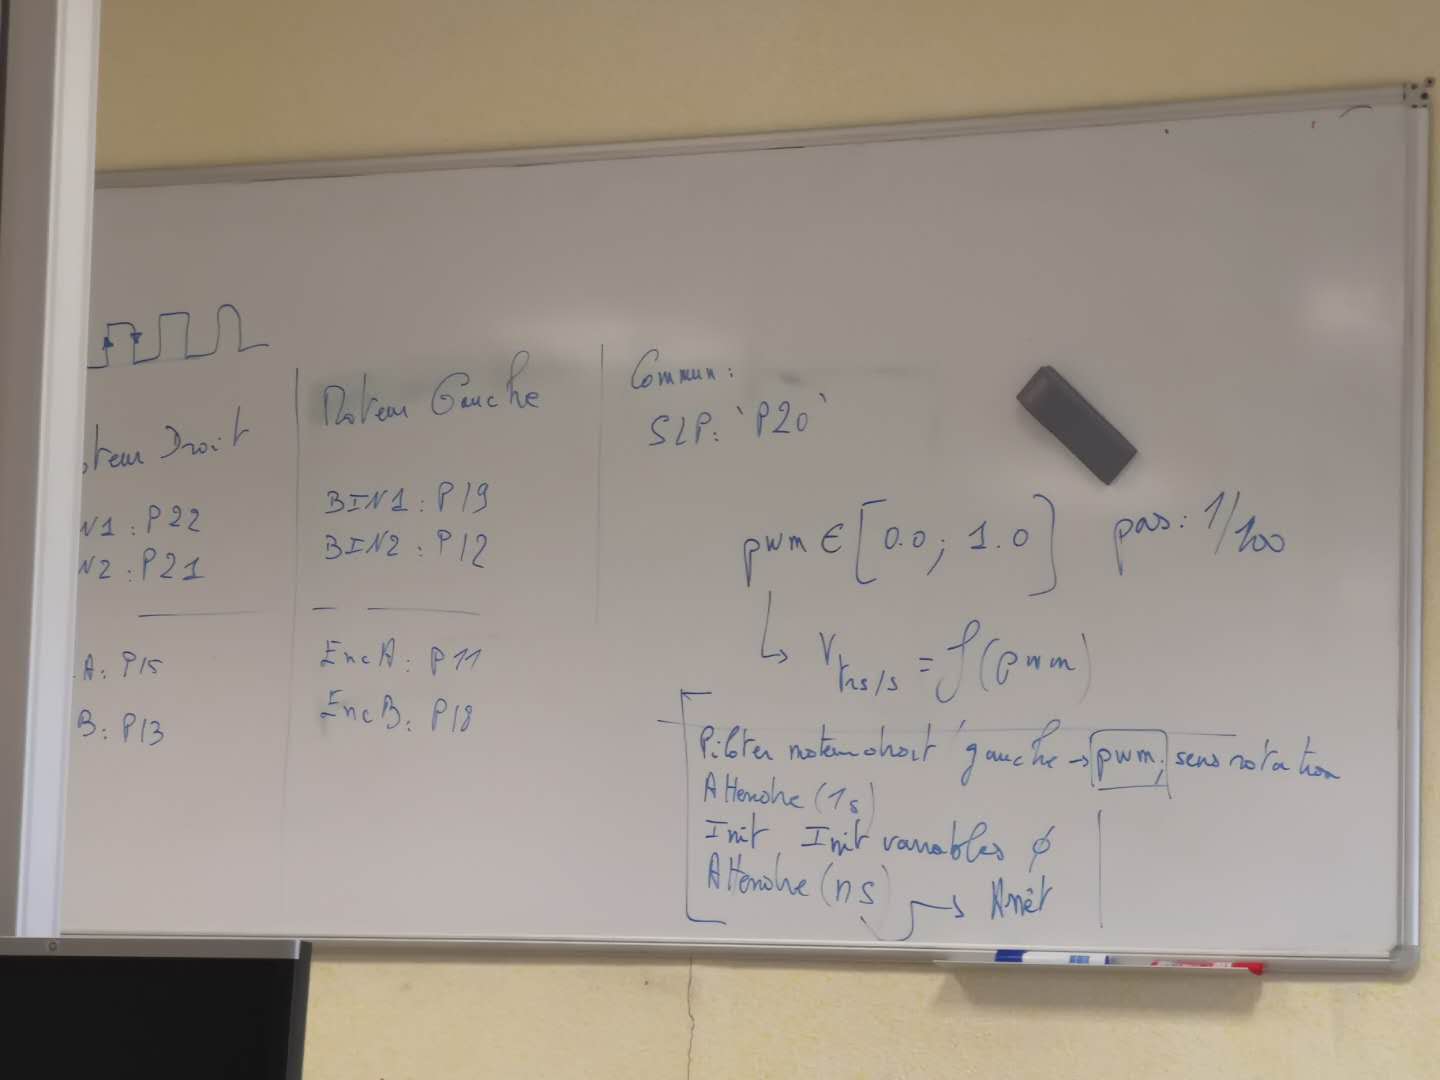 oteur Droit
N1 : P22
N2 : P21
A : P15
B : P13
Moteur Gauche
BIN1 : P19
BIN2 : P12
EncA : P11
EncB : P18
Commun :
SLP : 'P20'
pwm ∈ [0.0 ; 1.0] pas : 1/100
V trs/s = f(pwm)
Piloter moteur droit / gauche → pwm, sens rotation
Attendre (1s)
Init Init variables ϕ
Attendre (ns) → Arrêt